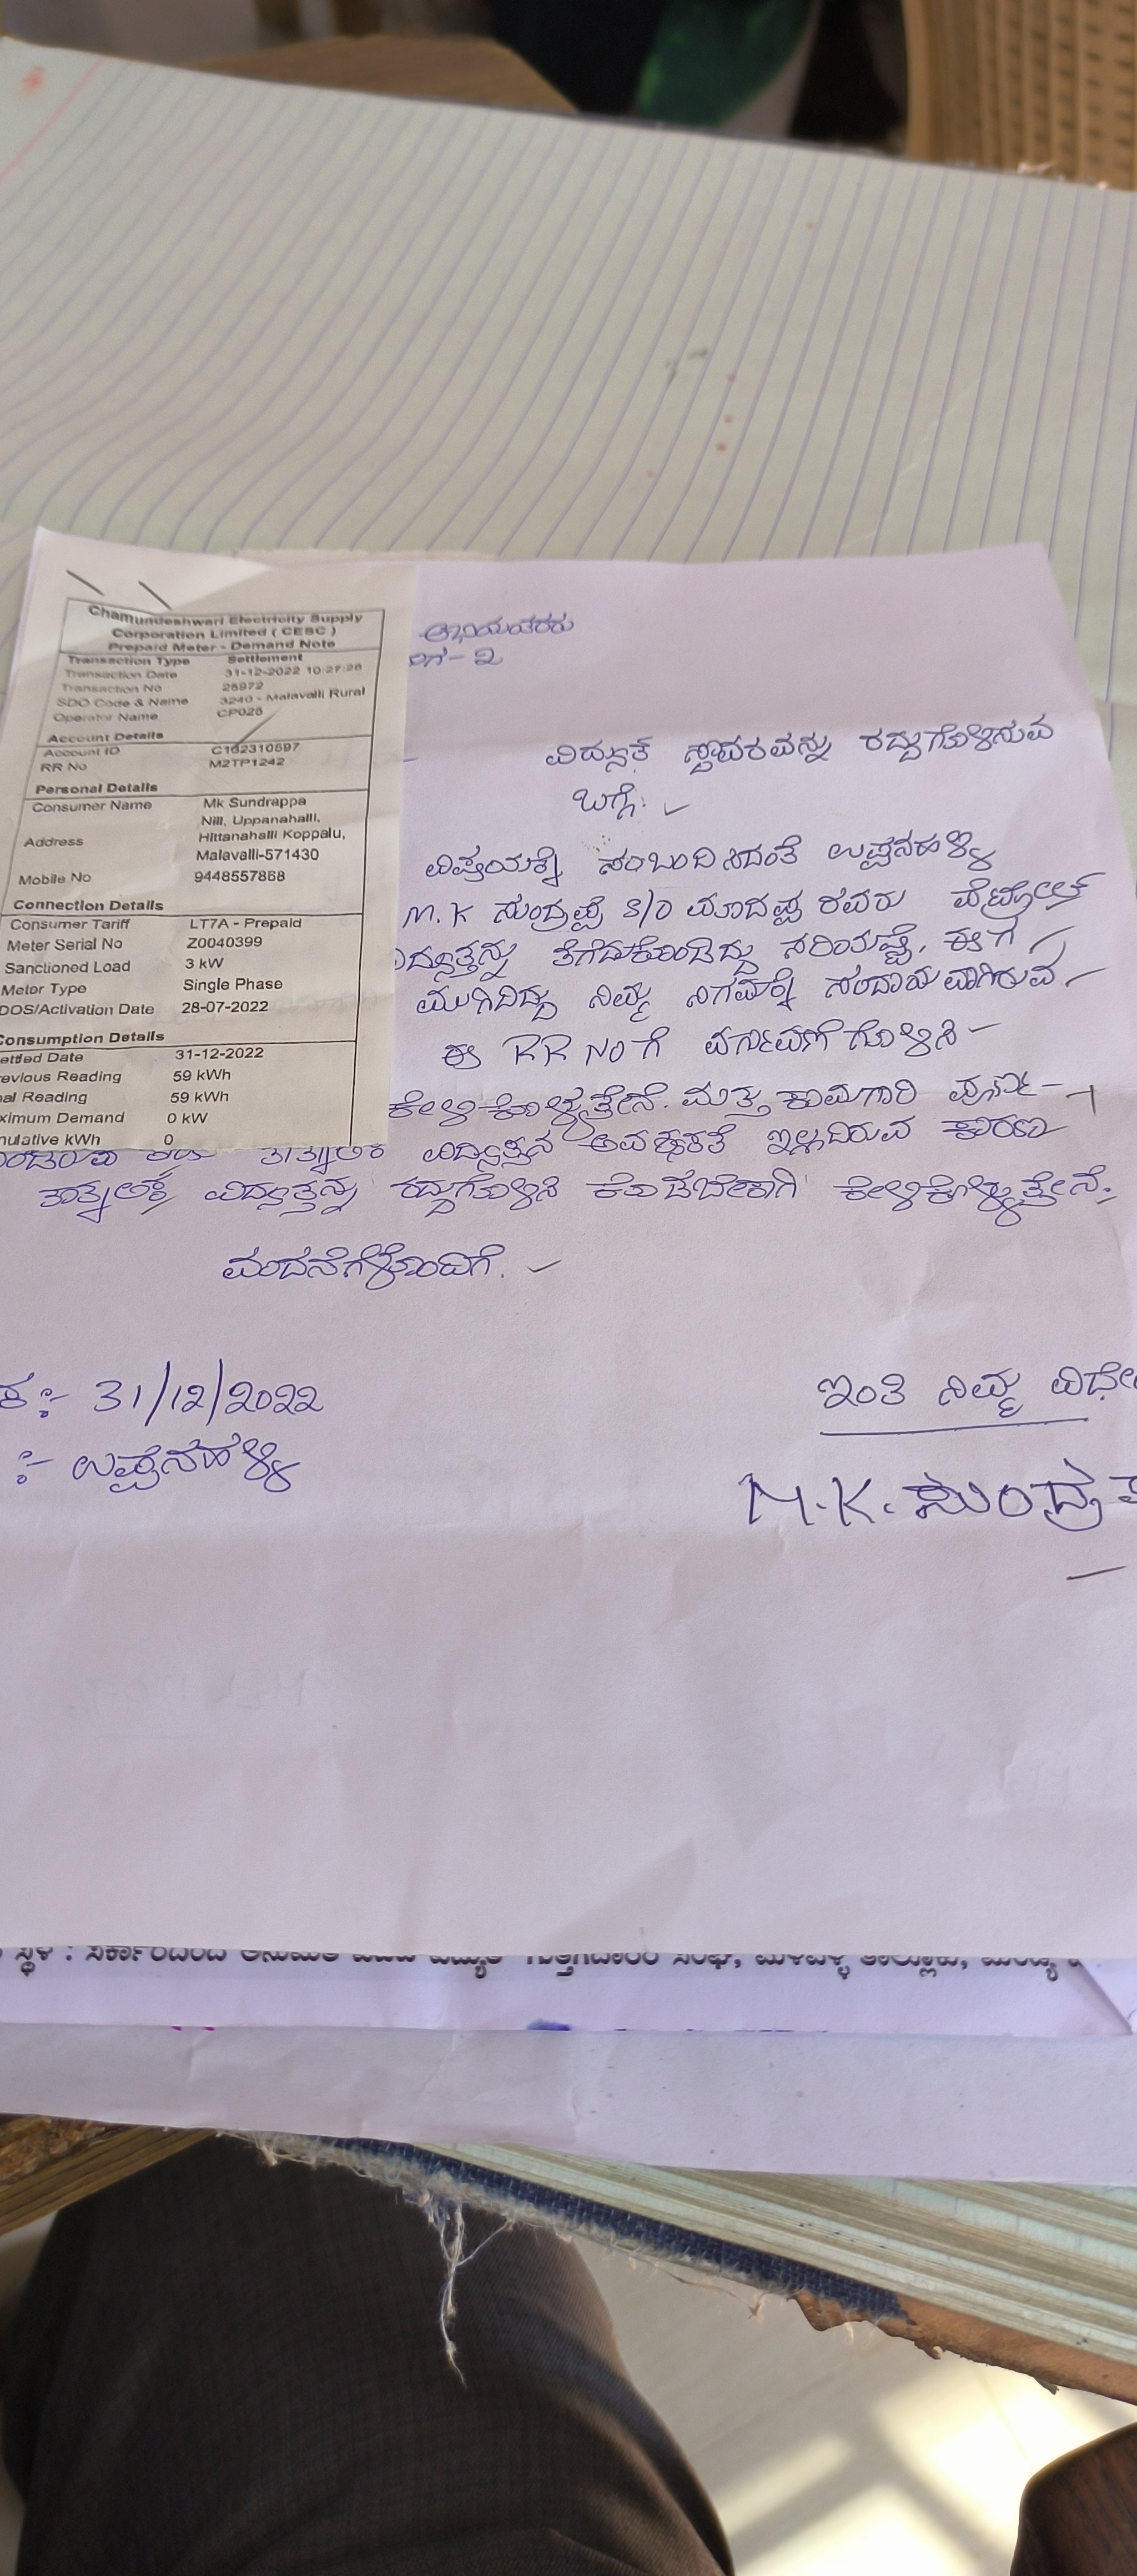 Chamundeshwari Electricity Supply
Corporation Limited ( CESC )
Prepaid Meter - Demand Note
Transaction Type Settlement
Transaction Date 31-12-2022 10:27:26
Transaction No 25972
SDO Code & Name 3240 - Malavalli Rural
Operator Name CP025
Account Details
Account ID C162310597
RR No M2TP1242
Personal Details
Consumer Name Mk Sundrappa
Address Nill, Uppanahalli,
Hittanahalli Koppalu,
Malavalli-571430
Mobile No 9448557868
Connection Details
Consumer Tariff LT7A - Prepaid
Meter Serial No Z0040399
Sanctioned Load 3 kW
Meter Type Single Phase
DOS/Activation Date 28-07-2022
Consumption Details
ettled Date 31-12-2022
evious Reading 59 kWh
al Reading 59 kWh
ximum Demand 0 kW
nulative kWh 0
ವಿದ್ಯುತ್ ಸ್ಥಾವರವನ್ನು ರದ್ದುಗೊಳಿಸುವ
ಬಗ್ಗೆ.
ವಿಷಯಕ್ಕೆ ಸಂಬಂದಿಸಿದಂತೆ ಉಪ್ಪನಹಳ್ಳಿ
M.K ಸುಂದ್ರಪ್ಪ S/O ಮಾದಪ್ಪ ರವರು ಪೆಟ್ರೋಲ್
ದ್ಯುತ್ತನ್ನು ತೆಗೆದುಕೊಂಡಿದ್ದು ಸರಿಯಷ್ಟೆ. ಈಗ
ಮುಗಿದಿದ್ದು ನಿಮ್ಮ ನಿಗಮಕ್ಕೆ ಸಂದಾಯವಾಗಿರುವ
ಈ RR NO ಗೆ ವರ್ಗಾವಣೆಗೊಳಿಸಿ
ಕೇಳಿಕೊಳ್ಳುತ್ತೇನೆ. ಮತ್ತು ಕಾಮಗಾರಿ ಪೂರ್ಣ
ವಿದ್ಯುತ್ತಿನ ಅವಶ್ಯಕತೆ ಇಲ್ಲದಿರುವ ಕಾರಣ
ತಾತ್ಕಾಲಿಕ ವಿದ್ಯುತ್ತನ್ನು ರದ್ದುಗೊಳಿಸಿ ಕೊಡಬೇಕಾಗಿ ಕೇಳಿಕೊಳ್ಳುತ್ತೇನೆ.
ವಂದನೆಗಳೊಂದಿಗೆ.
ಕ :- 31/12/2022
:- ಉಪ್ಪನಹಳ್ಳಿ
ಇಂತಿ ನಿಮ್ಮ ವಿಧೇ
M.K. ಸುಂದ್ರಪ
ಸ್ಥಳ : ಸರ್ಕಾರದಿಂದ ಅನುಮತಿ ಪಡೆದ ವಿದ್ಯುತ್ ಗುತ್ತಿಗೆದಾರರ ಸಂಘ, ಮಳವಳ್ಳಿ ತಾಲ್ಲೂಕು, ಮಂಡ್ಯ